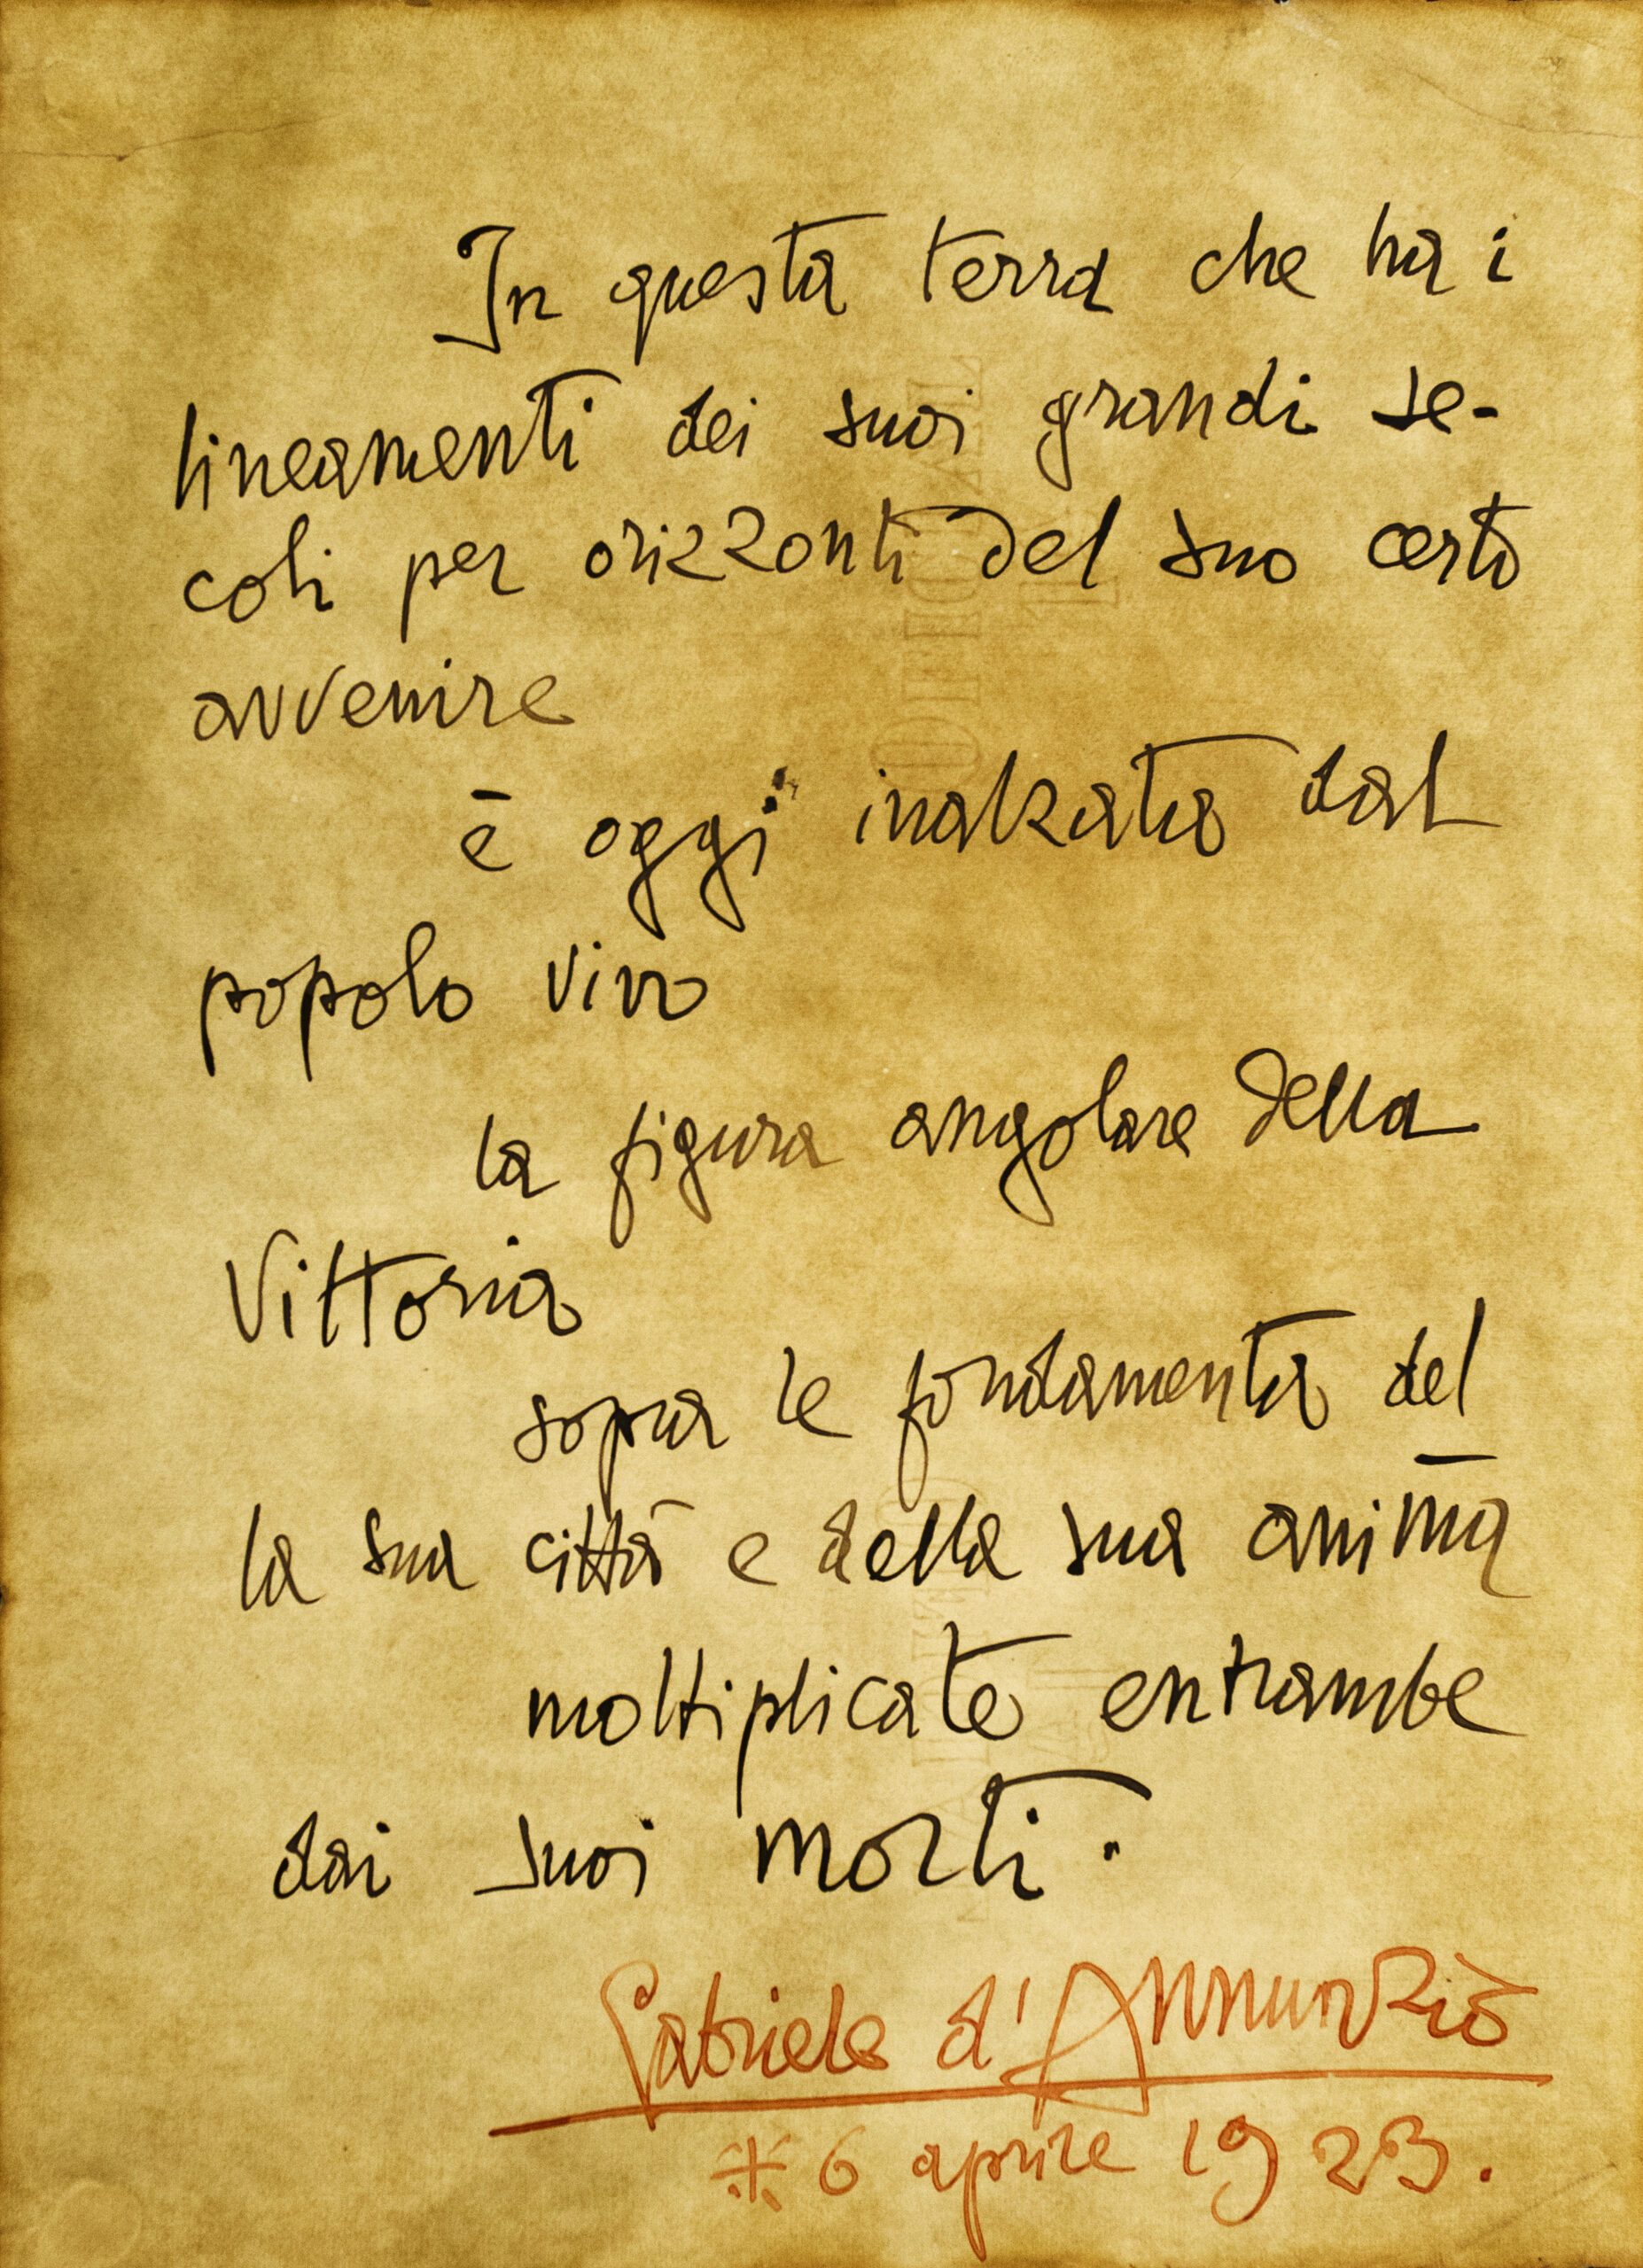 In questa terra che ha i
lineamenti dei suoi grandi se-
coli per orizzonti del suo certo
avvenire
è oggi inalzata dal
popolo vivo
la figura angolare della
Vittoria
sopra le fondamenta del
la sua città e della sua anima
moltiplicate entrambe
dai suoi morti.
Gabriele d'Annunzio
* 6 aprile 1923.